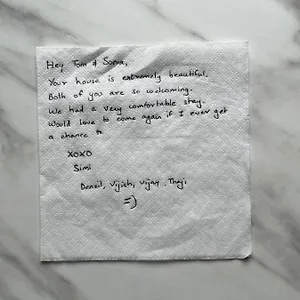 Hey Tom & Sonia,
Your house is extremely beautiful.
Both of you are so welcoming.
We had a very comfortable stay.
Would love to come again if I ever get
a chance to
XOXO
Simi
Densil, Vijish, Vijay, Theji
=)